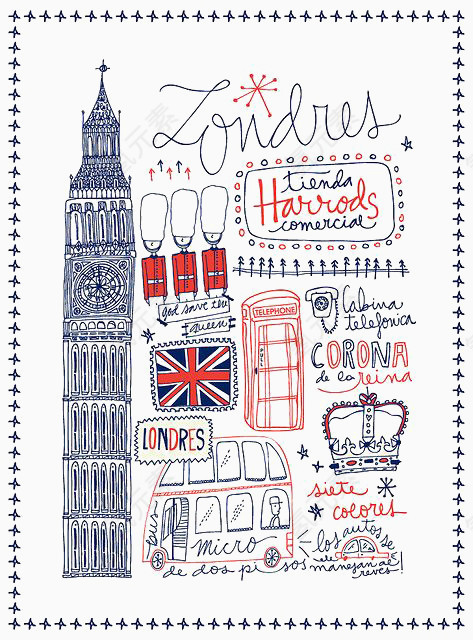 Londres
tienda
Harrods
comercial
god save the
queen
TELEPHONE
Cabina
telefonica
CORONA
de la reina
LONDRES
siete
colores
bus
micro
de dos pisos
los autos se
manejan al
reves!